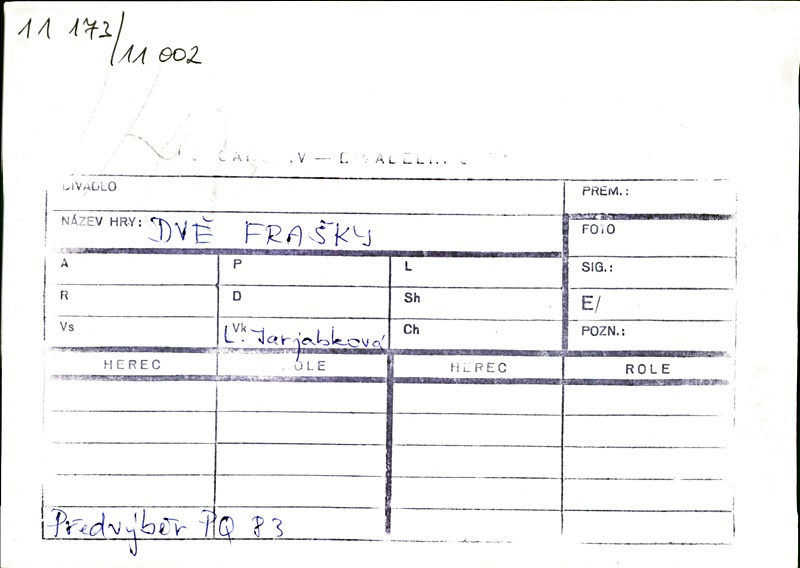 11 173/11 002
DIVADLO
PREM.:
NÁZEV HRY: DVĚ FRAŠKY
FOTO
A P L SIG.:
R D Sh E/
Vs Vk L. Jarjabková Ch POZN.:
HEREC ROLE HEREC ROLE
Předvýběr PQ 83